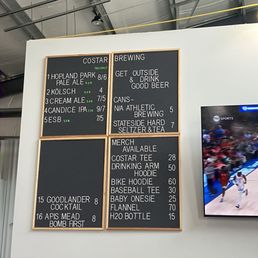 COSTAR
1 HOPLAND PARK
PALE ALE 8/6
2 KÖLSCH 7/5
3 CREAM ALE 7/5
4 CANDICE IPA 9/7
5 ESB 7/5
BREWING
GET OUTSIDE
& DRINK
GOOD BEER
CANS-
N/A ATHLETIC 5
BREWING
STATESIDE HARD 7
SELTZER & TEA
15 GOODLANDER 8
COCKTAIL
16 APIS MEAD 8
BOMB FIRST
MERCH
AVAILABLE
COSTAR TEE 28
DRINKING ARM 50
HOODIE
BIKE HOODIE 60
BASEBALL TEE 30
BABY ONESIE 25
FLANNEL 70
H2O BOTTLE 15
SPORTS